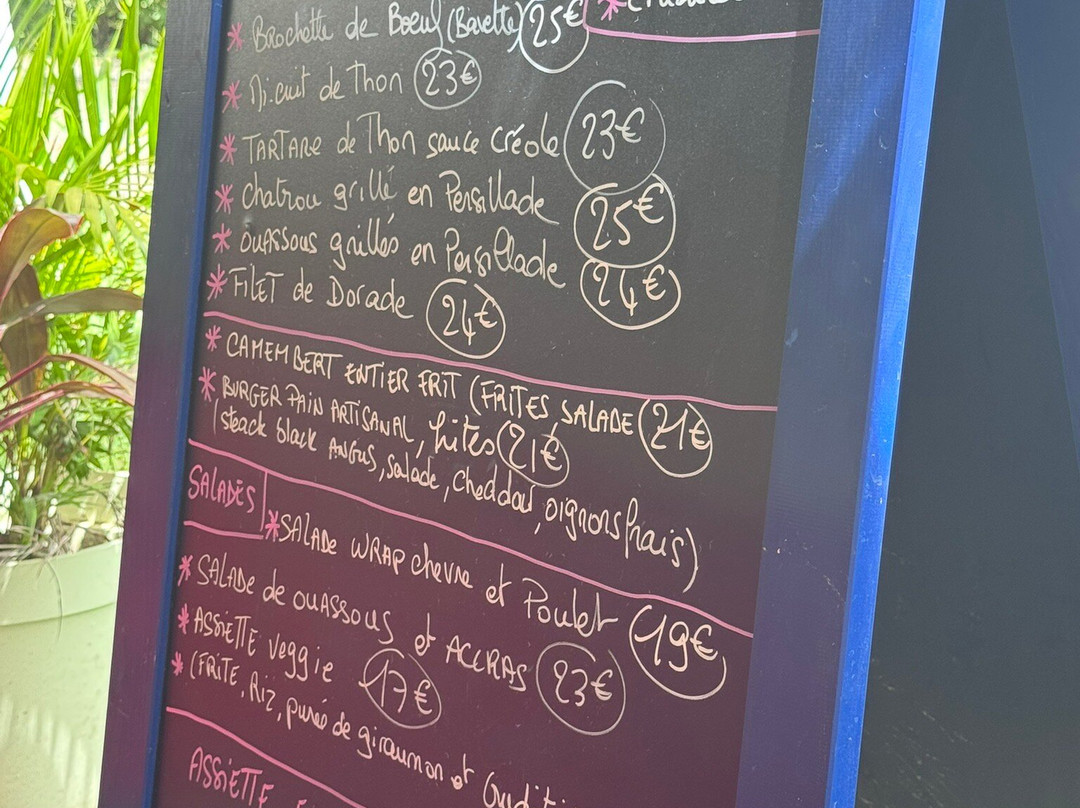 * Brochette de Boeuf (Bavette) 25€
* Mi.cuit de Thon 23€
* TARTARE de Thon sauce créole 23€
* Chatrou grillé en Persillade 25€
* OUASSOUS grillés en Persillade 24€
* FILET de Dorade 24€
* CAMEMBERT ENTIER FRIT (FRITES, SALADE 21€
* BURGER PAIN ARTISANAL, frites 21€
(steack black ANGUS, salade, cheddar, oignons frais)
SALADES
* SALADE WRAP chevre et Poulet 19€
* SALADE de OUASSOUS et ACCRAS 23€
* ASSIETTE veggie 17€
* (FRITE, Riz, purée de giraumon et
ASSIETTE